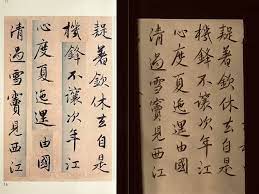 著欽休去自是
機鋒不讓次年江
心度夏迤邐由國
清過雪竇見西江
著欽休去自是
機鋒不讓次年江
心度夏迤邐由國
清過雪竇見西江